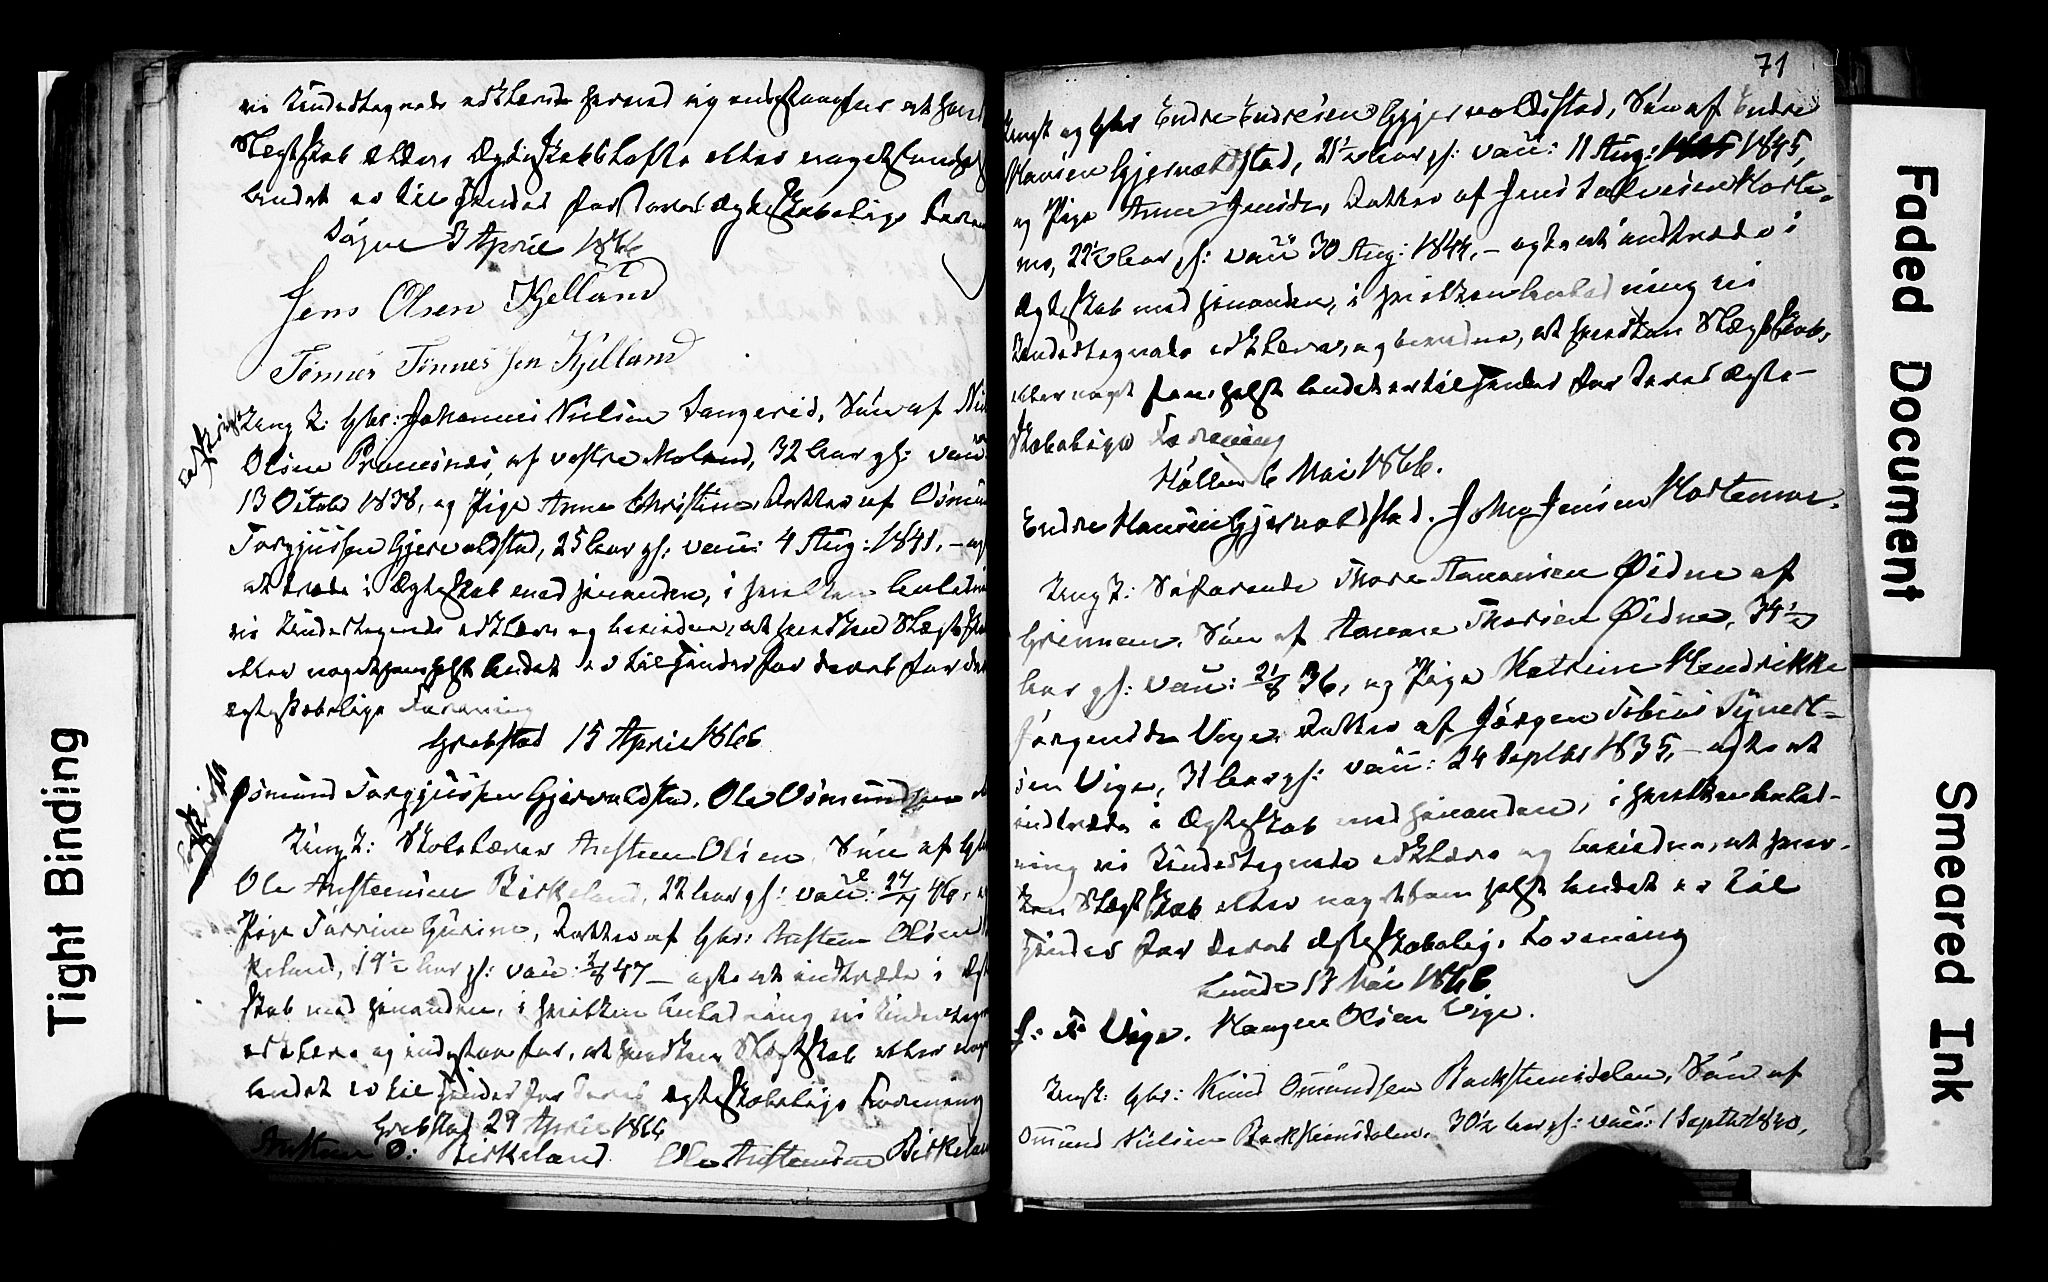 vi Undertegnede erklære herved og indestaa for at hverken
Slegtskab eller Egteskabsløfte eller noget somhelst
andet er til Hinder for deres egteskabelige Forening
Søgne 3 April 1866
Jens Olsen Kjelland
Tønnes Tønnessen Kjelland
Ungk: Gbr: Johannes Nielsen Langerid, Søn af
Olsen af vestre Moland, 32 Aar gl: vac:
13 Octob 1838, og Pige Anne Christine, Datter af Osmund
Torgjussen Gjervoldstad, 25 Aar gl: vac: 4 Aug: 1841, – agte
at træde i Egteskab med hinanden, i hvilken Anledning
vi Undertegnede erklære og bevidne, at hverken Slegtskab
eller noget somhelst Andet er til Hinder for deres
egteskabelige Forening
Grebstad 15 April 1866
Osmund Torgjussen Gjervoldstad. Ole Osmundsen
Ungk: Skolelærer Austeen Olsen, Søn af Gbr
Ole Austeensen Birkeland, 22 Aar gl: vac: 46, og
Pige Torrine Gurine, Datter af Gbr: Austeen Olsen
19½ Aar gl: vac: 47 – agte at indtræde i Egte
skab med hinanden, i hvilken Anledning vi Undertegnede
erklære og indestaa for, at hverken Slegtskab eller noget
andet er til Hinder for deres egteskabelige Forening
Grebstad 29 April 1866
Austeen O: Birkeland. Ole Austeensen Birkeland
71
Ungk og Gbr Endre Endresen Gjervoldstad, Søn af Endre
Hansen Gjervoldstad, 21½ Aar gl: vac: 11 Aug: 1845,
og Pige Anne Jensdr, Datter af Jens Salvesen Morte-
mo, 22½ Aar gl: vac 30 Aug: 1844, – agte at indtræde i
Egteskab med hinanden, i hvilken Anledning vi
Undertegnede erklære, og bevidne, at hverken Slægtskab,
eller noget somhelst Andet er til Hinder for deres Egte-
skabelige Forening
Høllen 6 Mai 1866.
Endre Hansen Gjervoldstad. Johs Jensen Mortemoe.
Ungk: Søfarende Thore Aanensen Øidne af
Grimnæs, Søn af Aanon Thorsen Øidne, 34½
Aar gl: vac: 21/8 36, og Pige Katrine Hendrikke
Jørgensdr Vige, Datter af Jørgen Tobias
sen Vige, 31 Aar gl: vac: 24 Septbr 1835, – agte at
indtræde i Egteskab med hinanden, i hvilken Anled-
ning vi Undertegnede erklære og bevidne, at hver-
ken Slægtskab eller noget som helst Andet er til
Hinder for deres Egteskabelig. Forening
Lunde 17 Mai 1866
J: T Vige. Haagen Olsen Vige.
Ungk: Gbr: Knud Omundsen Bachsteensdalen, Søn af
Omund Nielsen Bachsteensdalen, 30½ Aar gl: vac: 1 Septbr 1840,
Tight Binding
Faded Document
Smeared Ink